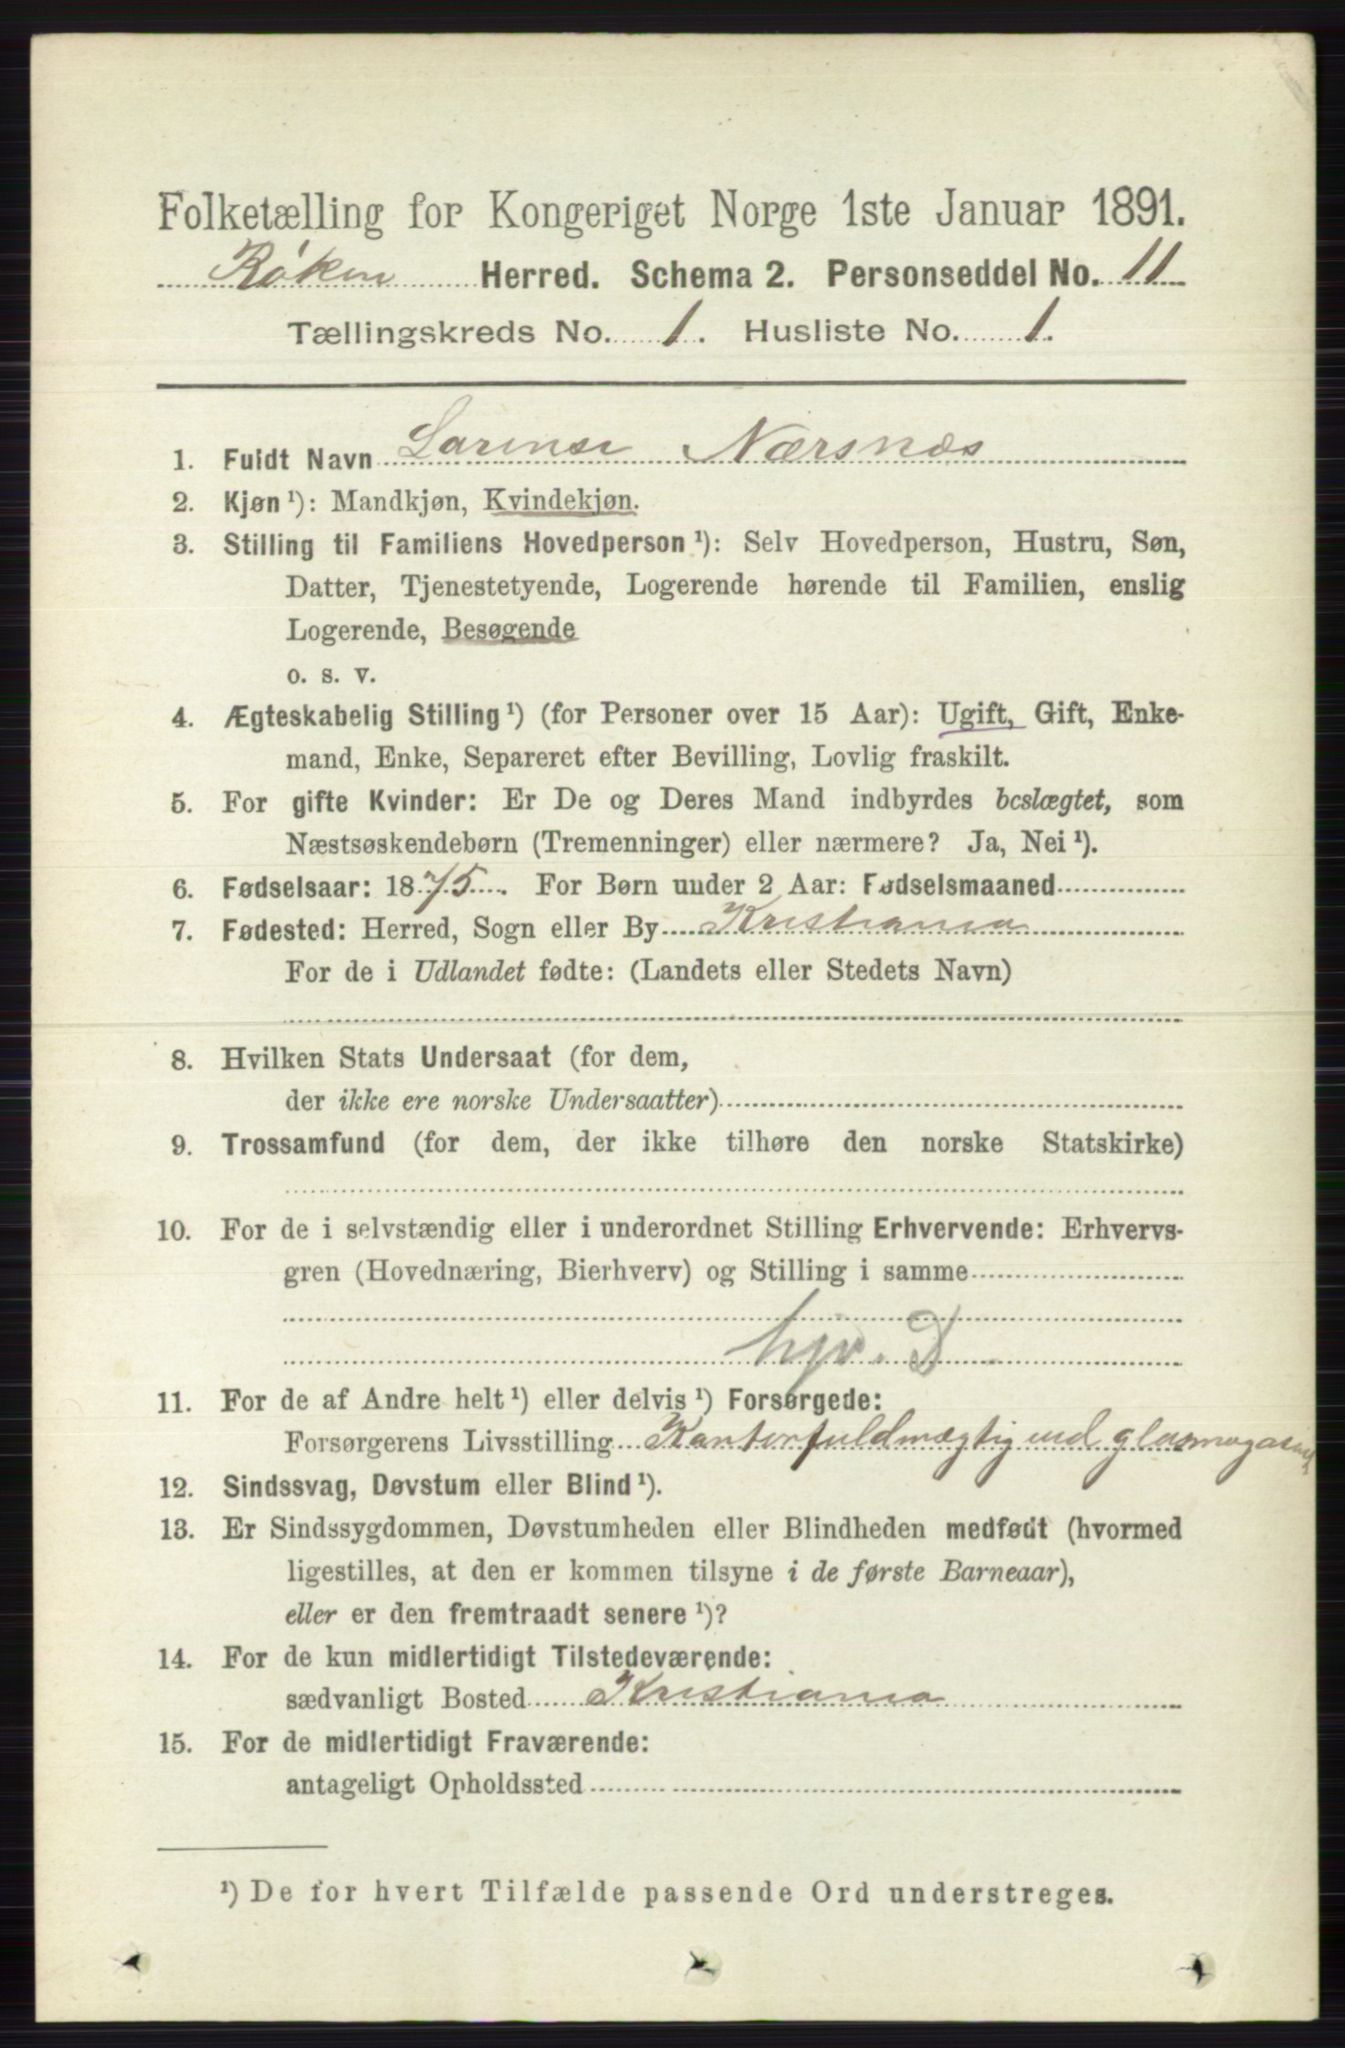 Folketælling for Kongeriget Norge 1ste Januar 1891.
Røken Herred. Schema 2. Personseddel No. 11
Tællingskreds No. 1. Husliste No. 1.
1. Fuldt Navn Larense Nærsnæs
2. Kjøn ¹): Mandkjøn, Kvindekjøn.
3. Stilling til Familiens Hovedperson ¹): Selv Hovedperson, Hustru, Søn,
Datter, Tjenestetyende, Logerende hørende til Familien, enslig
Logerende, Besøgende
o. s. v.
4. Ægteskabelig Stilling ¹) (for Personer over 15 Aar): Ugift, Gift, Enke-
mand, Enke, Separeret efter Bevilling, Lovlig fraskilt.
5. For gifte Kvinder: Er De og Deres Mand indbyrdes beslægtet, som
Næstsøskendebørn (Tremenninger) eller nærmere? Ja, Nei ¹).
6. Fødselsaar: 1875. For Børn under 2 Aar: Fødselsmaaned
7. Fødested: Herred, Sogn eller By Kristiania
For de i Udlandet fødte: (Landets eller Stedets Navn)
8. Hvilken Stats Undersaat (for dem,
der ikke ere norske Undersaatter)
9. Trossamfund (for dem, der ikke tilhøre den norske Statskirke)
10. For de i selvstændig eller i underordnet Stilling Erhvervende: Erhvervs-
gren (Hovednæring, Bierhverv) og Stilling i samme
hjv. D
11. For de af Andre helt ¹) eller delvis ¹) Forsørgede:
Forsørgerens Livsstilling Kontorfuldmægtig ved glasmagasinet
12. Sindssvag, Døvstum eller Blind ¹).
13. Er Sindssygdommen, Døvstumheden eller Blindheden medfødt (hvormed
ligestilles, at den er kommen tilsyne i de første Barneaar),
eller er den fremtraadt senere ¹)?
14. For de kun midlertidigt Tilstedeværende:
sædvanligt Bosted Kristiania
15. For de midlertidigt Fraværende:
antageligt Opholdssted
¹) De for hvert Tilfælde passende Ord understreges.